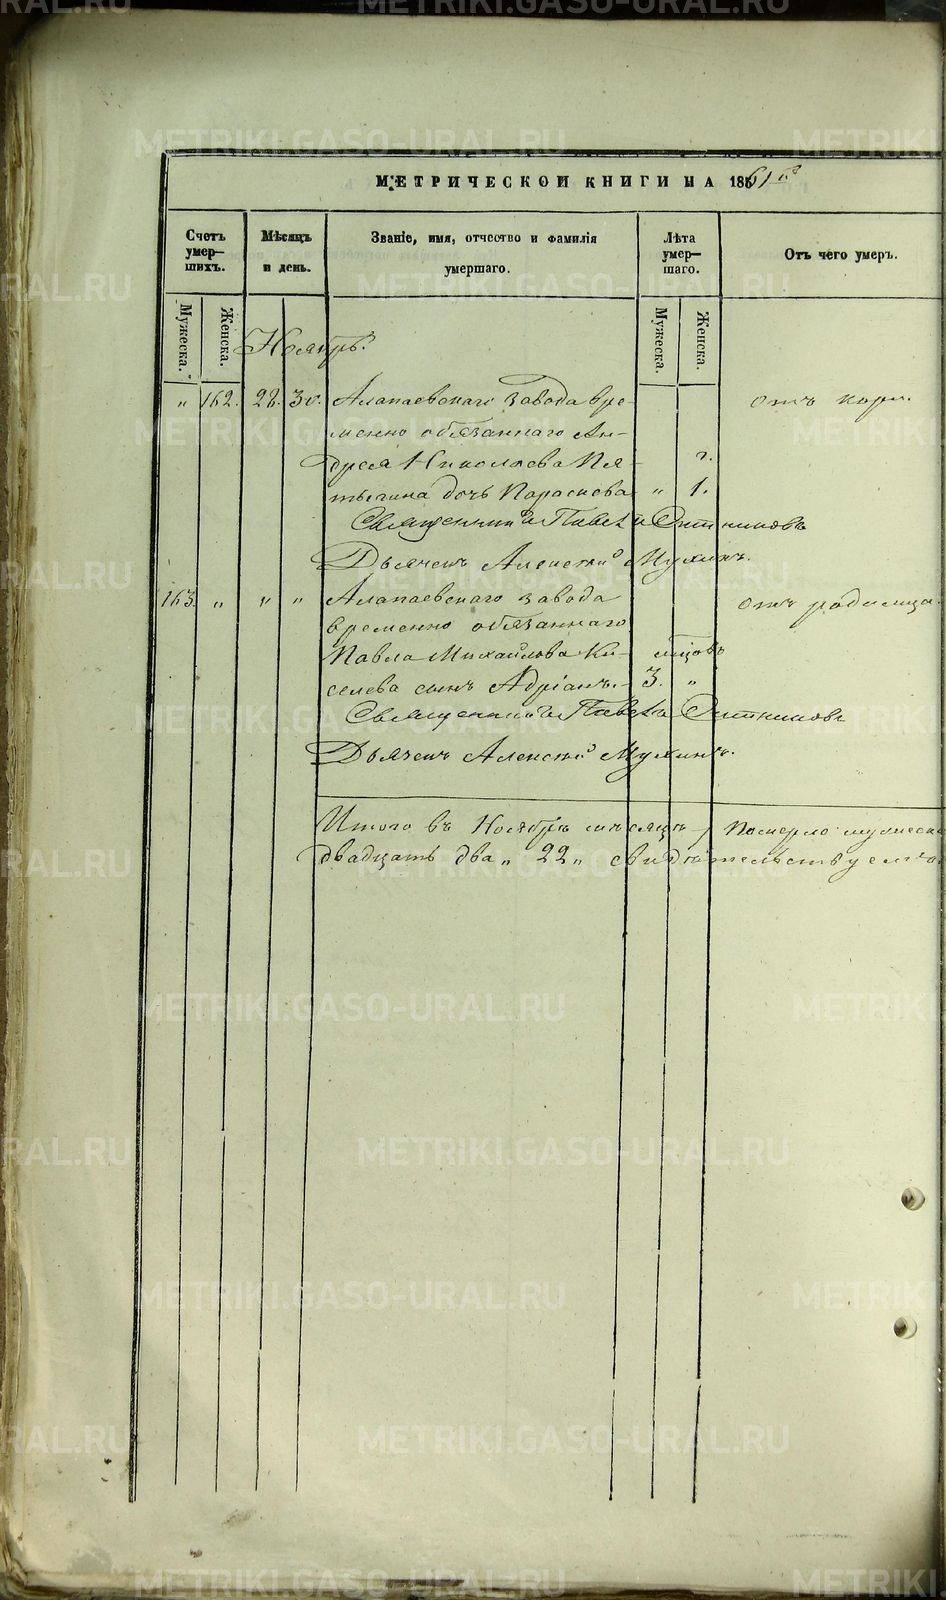 МЕТРИЧЕСКОЙ КНИГИ НА 1861 й
Счетъ умер-
шихъ.
Мѣсяцъ
и день.
Званіе, имя, отчество и фамилія
умершаго.
Лѣта
умер-
шаго.
Отъ чего умеръ.
Мужеска.
Женска.
Мужеска.
Женска.
Ноябрь.
„ 162. 28. 30. Алапаевскаго завода вре- отъ кори.
менно обязаннаго Ан-
дрея Николаева Пя- г.
тыгина дочь Параскева „ 1.
Священникъ Павелъ Ситниковъ
Дьячекъ Алексѣй Мухинъ.
163. „ „ „ Алапаевскаго завода отъ родимца.
временно обязаннаго
Павла Михайлова Ки- мѣсяцовъ
селева сынъ Адріанъ. 3. „
Священникъ Павелъ Ситниковъ
Дьячекъ Алексѣй Мухинъ.
Итого въ Ноябрѣ мѣсяцѣ померло мужеска
двадцать два „ 22 „ свидѣтельствуемъ
METRIKI.GASO-URAL.RU